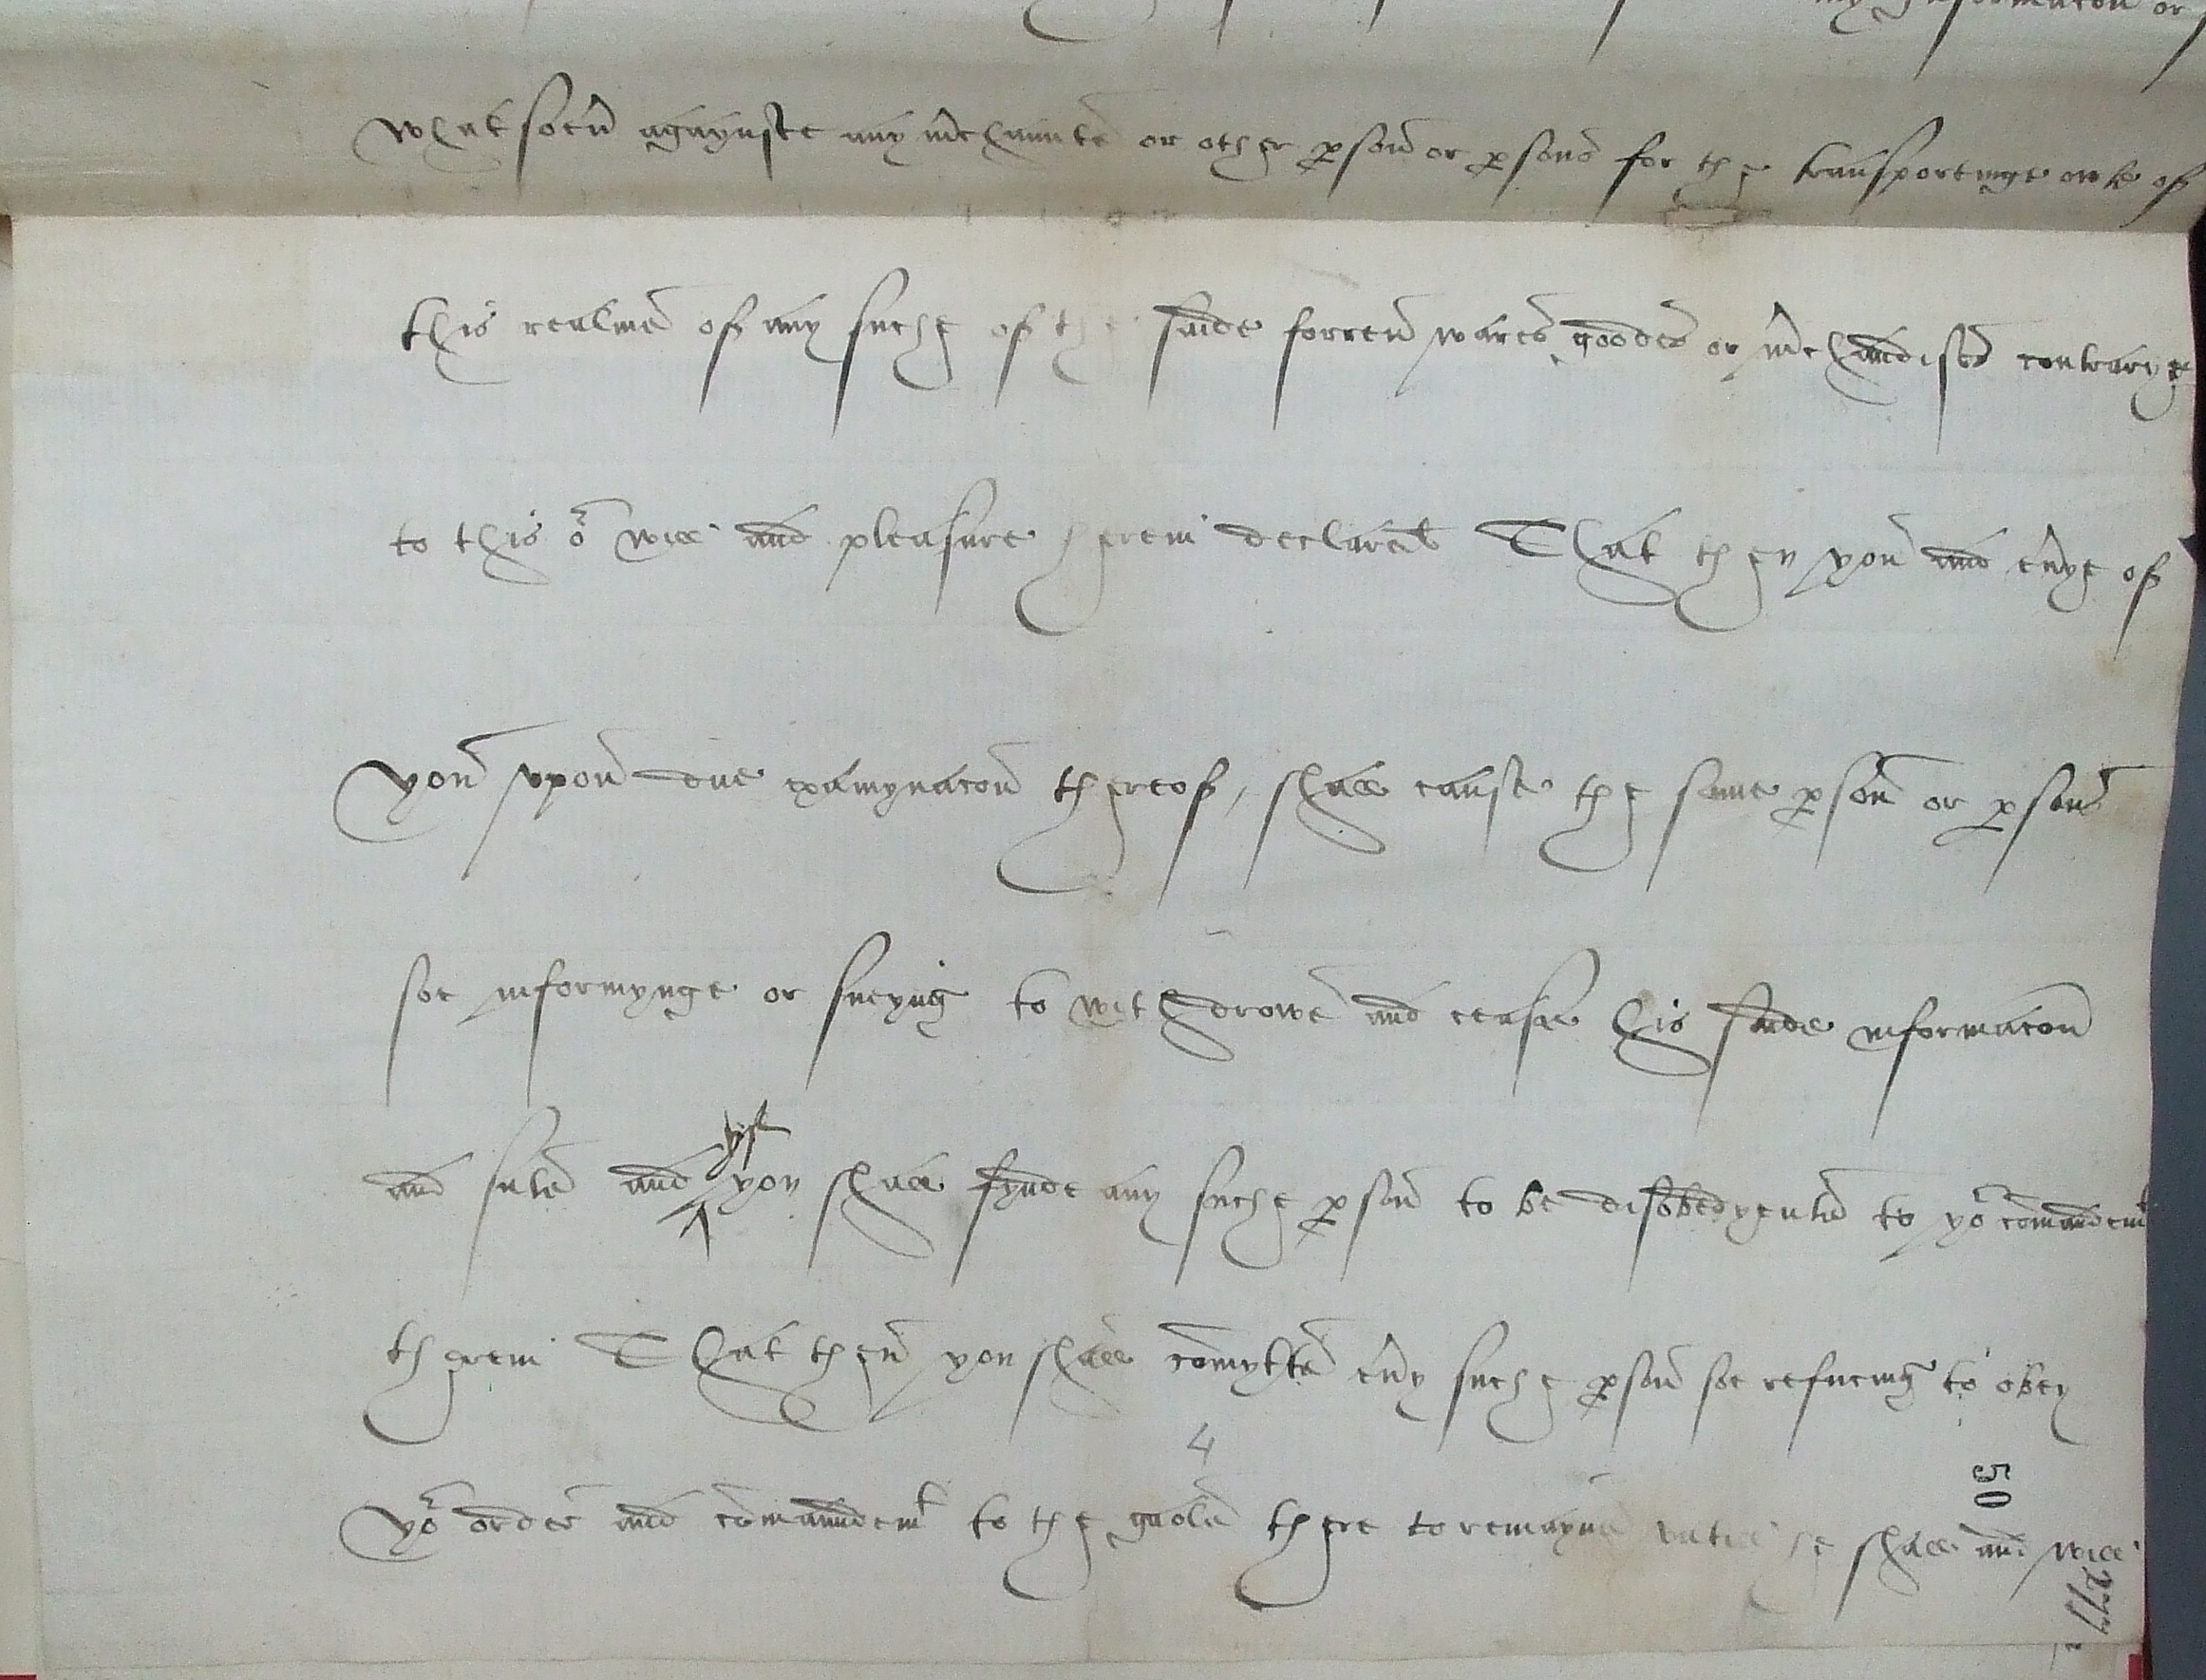 my Informacon or
whatsoeũ agaynste any m̃chaunte or other ꝑson or ꝑsons for the transportinge owte of
this realme of any suche of the saide forren wares goodes or m̃chaundises contrarye
to this oʳ will and pleasure herein declared That then you and eũye of
you vpon due examynacon thereof, shall cause the same ꝑson or ꝑsons
soe informynge or sueyng to withdrowe and cease his saide informacon
and sute and yf you shall fynde any suche ꝑson to be disobedyente to yoʳ com̃andemᵗ
therein That then you shall com̃ytte eũy suche ꝑson soe refucing to obey
4
yoʳ order and com̃aundemᵗ to the gaole there to remayne vntill he shall and will
50